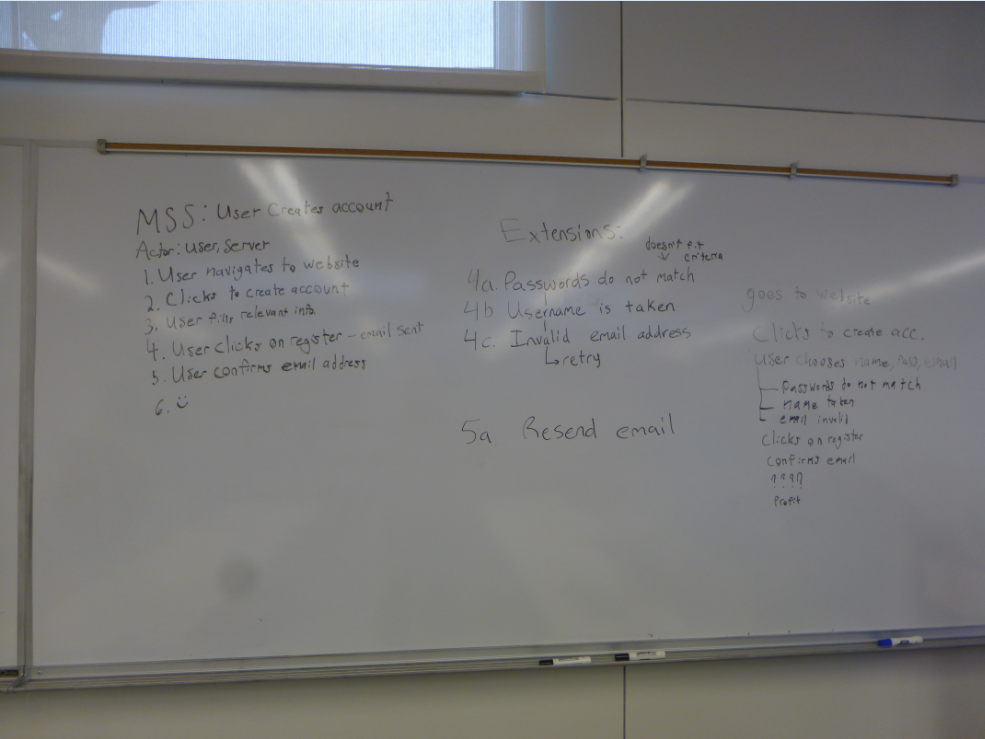 MSS: User Creates account
Actor: User, Server
1. User navigates to website
2. Clicks to create account
3. User fills relevant info.
4. User clicks on register – email sent
5. User confirms email address
6. ☺
Extensions:
doesn't fit
criteria
4a. Passwords do not match
4b Username is taken
4c. Invalid email address
retry
5a Resend email
goes to website
Clicks to create acc.
User chooses name, Pass, email
Passwords do not match
name taken
email invalid
Clicks on register
Confirms email
????
Profit